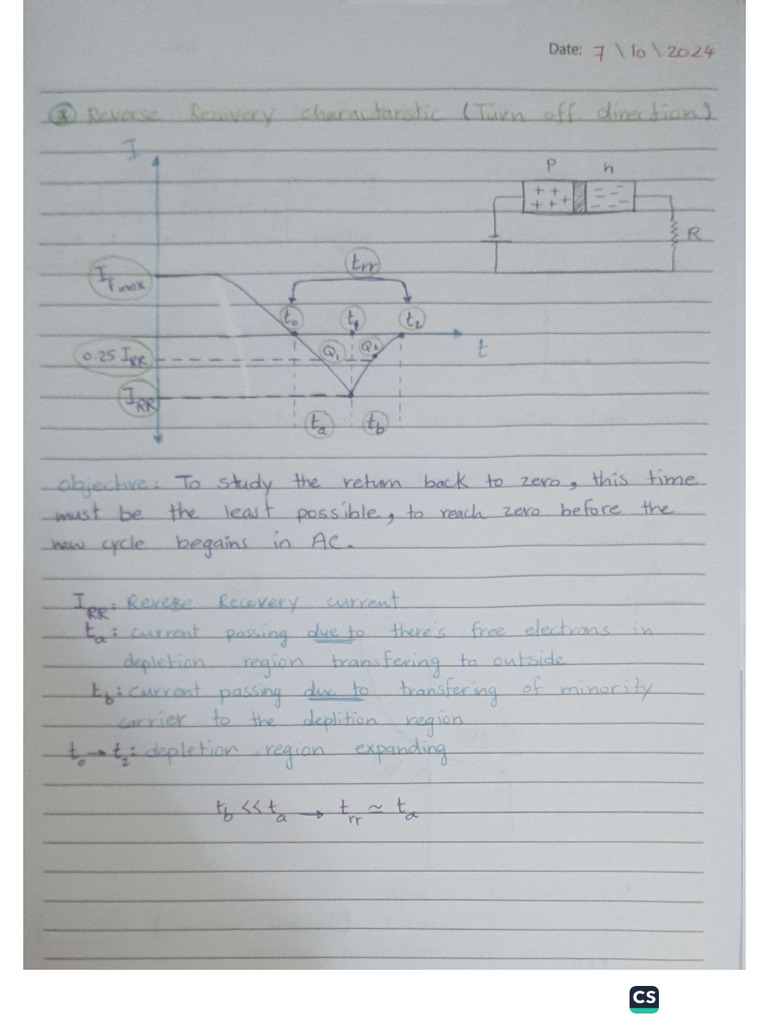 Date: 7 \ 10 \ 2024
* Reverse Recovery charactarstic (Turn off direction)
I
P n
+ + - - -
+ + + - - -
R
trr
IFmax
t0 t1 t2
t
0.25 IRR
Q1 Q2
IRR
ta tb
objective: To study the return back to zero, this time
must be the least possible, to reach zero before the
new cycle begains in AC.
IRR: Revese Recovery current
ta: current passing due to there's free electrons in
depletion region transfering to outside
tb: current passing due to transfering of minority
carrier to the deplition region
t0 → t2: depletion region expanding
tb << ta → trr ≃ ta
CS